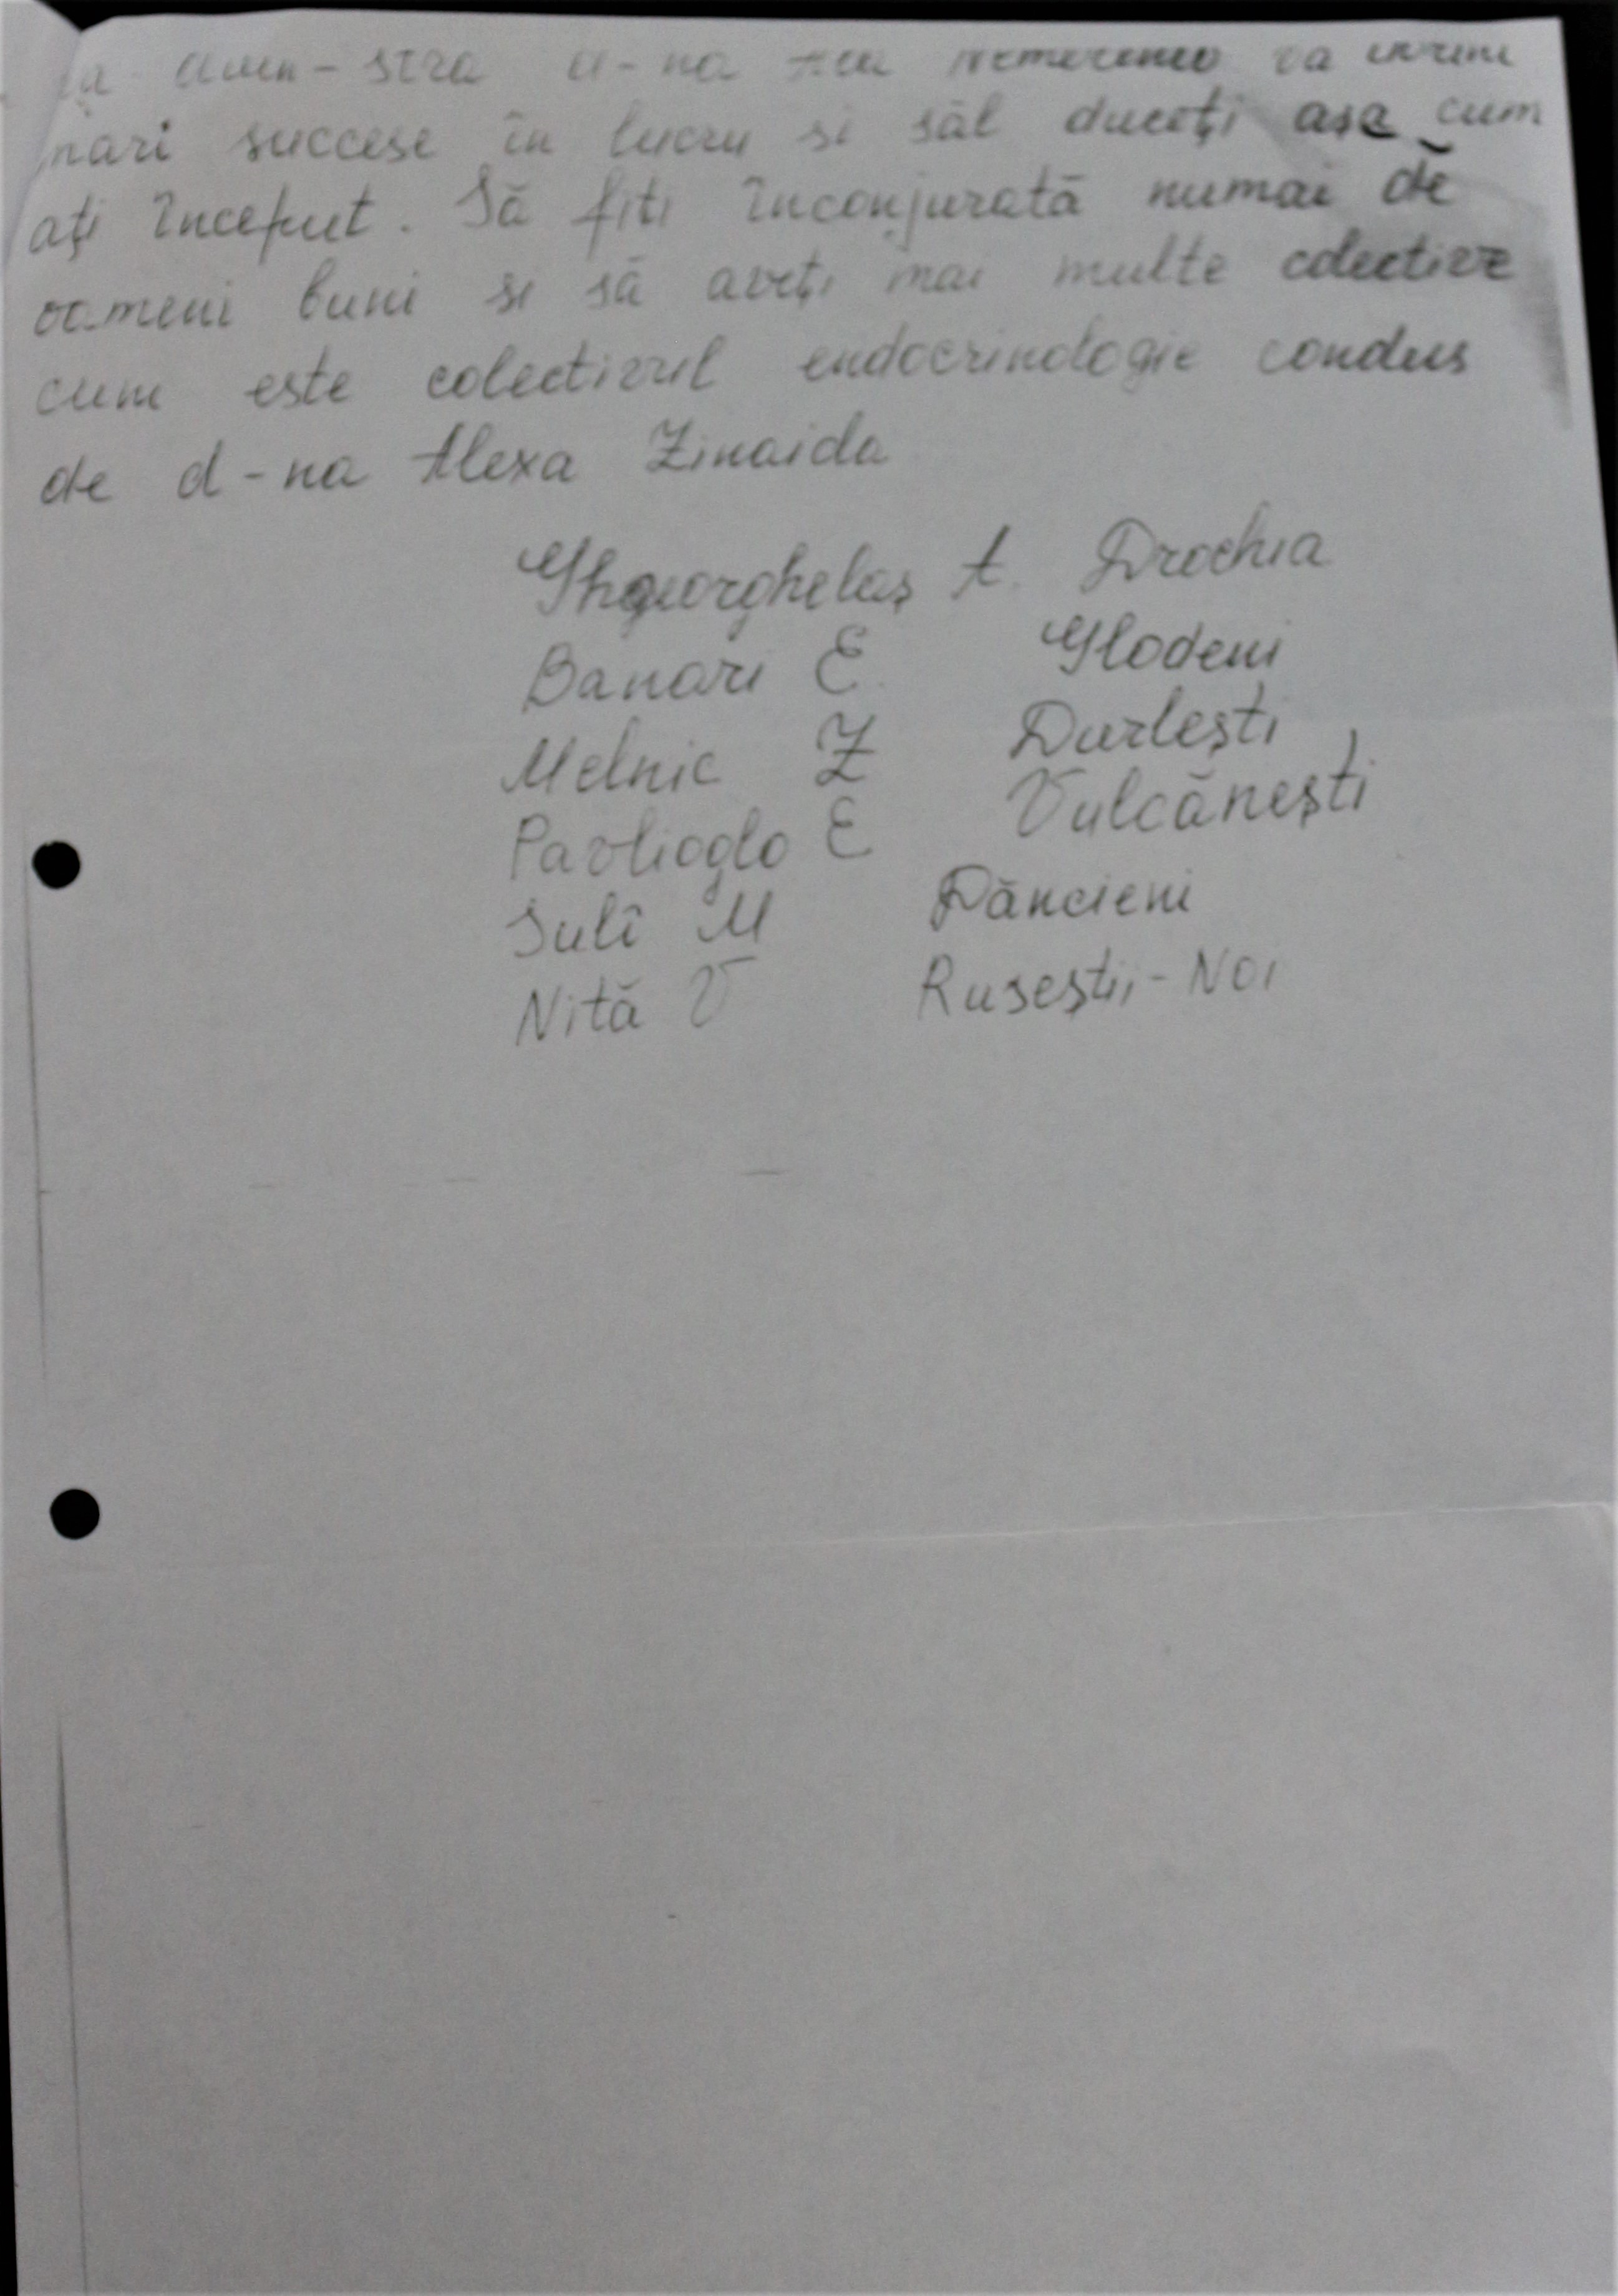 d-na va
mari succese în lucru si săl duceți așa cum
ați început. Să fiti înconjurată numai de
oameni buni si să aveți mai multe colective
cum este colectivul endocrinologie condus
de d-na Alexa Zinaida
Ghgeorghelaș A. Drochia
Banari E. Glodeni
Melnic Z Durlești
Pavlioglo E Vulcănești
Sulî M Dăncieni
Nită V Ruseștii-Noi